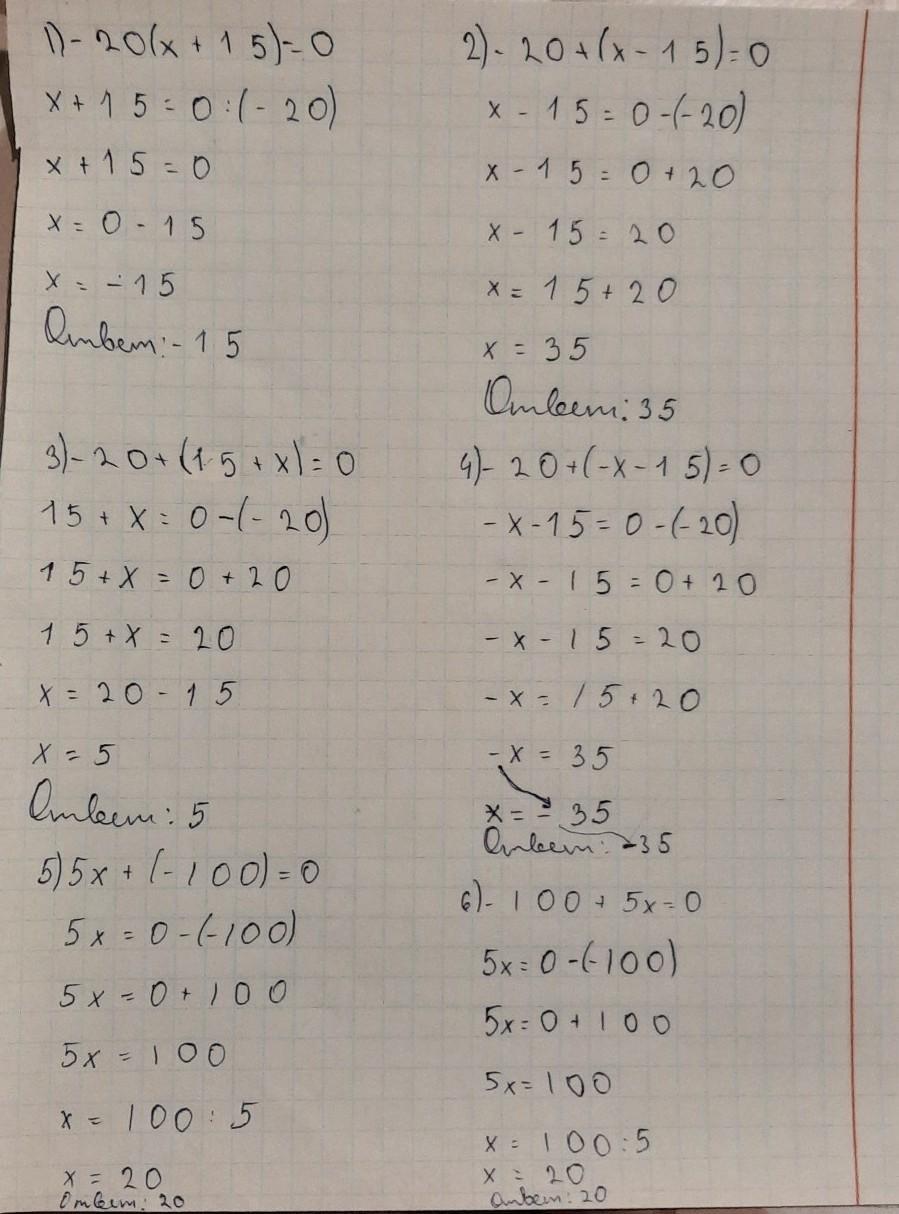 1) - 20(x + 15) = 0
x + 15 = 0 : (- 20)
x + 15 = 0
x = 0 - 15
x = - 15
Ответ: - 15
2) - 20 + (x - 15) = 0
x - 15 = 0 - (- 20)
x - 15 = 0 + 20
x - 15 = 20
x = 15 + 20
x = 35
Ответ: 35
3) - 20 + (15 + x) = 0
15 + x = 0 - (- 20)
15 + x = 0 + 20
15 + x = 20
x = 20 - 15
x = 5
Ответ: 5
4) - 20 + (- x - 15) = 0
- x - 15 = 0 - (- 20)
- x - 15 = 0 + 20
- x - 15 = 20
- x = 15 + 20
- x = 35
x = - 35
Ответ: -35
5) 5x + (- 100) = 0
5x = 0 - (- 100)
5x = 0 + 100
5x = 100
x = 100 : 5
x = 20
Ответ: 20
6) - 100 + 5x = 0
5x = 0 - (- 100)
5x = 0 + 100
5x = 100
x = 100 : 5
x = 20
Ответ: 20